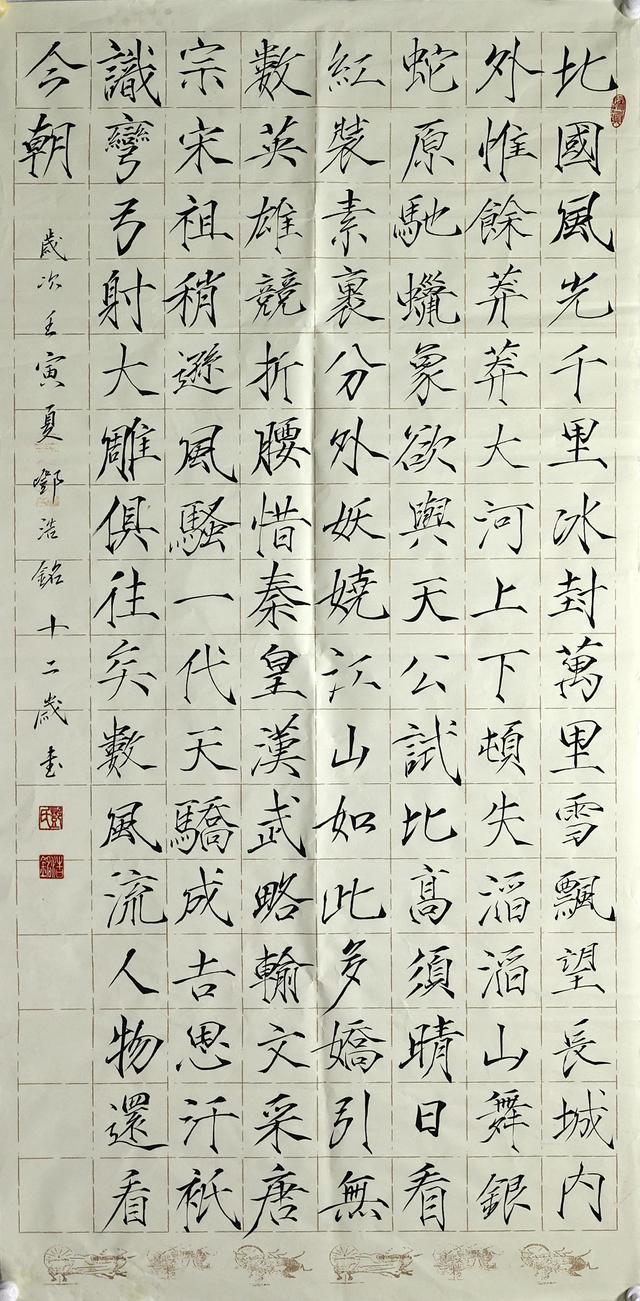 北國風光千里冰封萬里雪飄望長城内
外惟餘莽莽大河上下頓失滔滔山舞銀
蛇原馳蠟象欲與天公試比高須晴日看
紅裝素裹分外妖嬈江山如此多嬌引無
數英雄競折腰惜秦皇漢武略輸文采唐
宗宋祖稍遜風騷一代天驕成吉思汗衹
識彎弓射大雕俱往矣數風流人物還看
今朝
歲次壬寅夏鄧浩銘十二歲書